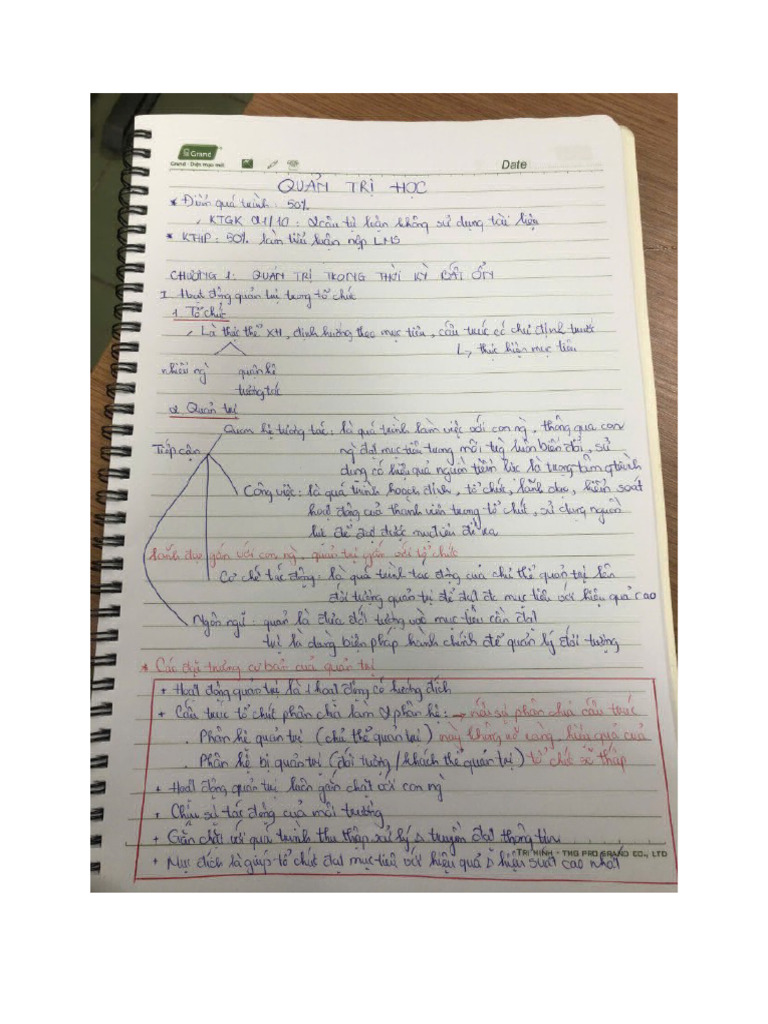 Grand
Grand - Diện mạo mới
Date
QUẢN TRỊ HỌC
* Điểm quá trình : 50%
KTGK 21/10 : 2 câu tự luận không sử dụng tài liệu
* KTHP : 50% làm tiểu luận nộp LMS
CHƯƠNG 1: QUẢN TRỊ TRONG THỜI KỲ BẤT ỔN
I. Hoạt động quản trị trong tổ chức
1. Tổ chức
Là thực thể XH, định hướng theo mục tiêu, cấu trúc có chủ định trước
↳ thực hiện mục tiêu
nhiều ng̀ quan hệ
tương tác
2. Quản trị
Quan hệ tương tác : là quá trình làm việc với con ng̀, thông qua con
Tiếp cận ng̀ đạt mục tiêu trong môi trg luôn biến đổi, sử
dụng có hiệu quả nguồn tiềm lực là trọng tâm
Công việc : là quá trình hoạch định, tổ chức, lãnh đạo, kiểm soát
hoạt động của thành viên trong tổ chức, sử dụng nguồn
lực để đạt được mục tiêu đề ra
lãnh đạo gắn với con ng̀, quản trị gắn với tổ chức
Cơ chế tác động : là quá trình tác động của chủ thể quản trị lên
đối tượng quản trị để đạt đc mục tiêu với hiệu quả cao
Ngôn ngữ : quản là đưa đối tượng vào mục tiêu cần đạt
trị là dùng biện pháp hành chính để quản lý đối tượng
* Các đặc trưng cơ bản của quản trị
+ Hoạt động quản trị là 1 hoạt động có hướng đích
+ Cấu trúc tổ chức phân chia làm 2 phân hệ : → nếu sự phân chia cấu trúc
. Phân hệ quản trị (chủ thể quản trị) này không rõ ràng, hiệu quả của
. Phân hệ bị quản trị (đối tượng / khách thể quản trị) tổ chức sẽ thấp
+ Hoạt động quản trị luôn gắn chặt với con ng̀
+ Chịu sự tác động của môi trường
+ Gắn chặt với quá trình thu thập xử lý & truyền đạt thông tin
+ Mục đích là giúp tổ chức đạt mục tiêu với hiệu quả & hiệu suất cao nhất
GRAND CO., LTD